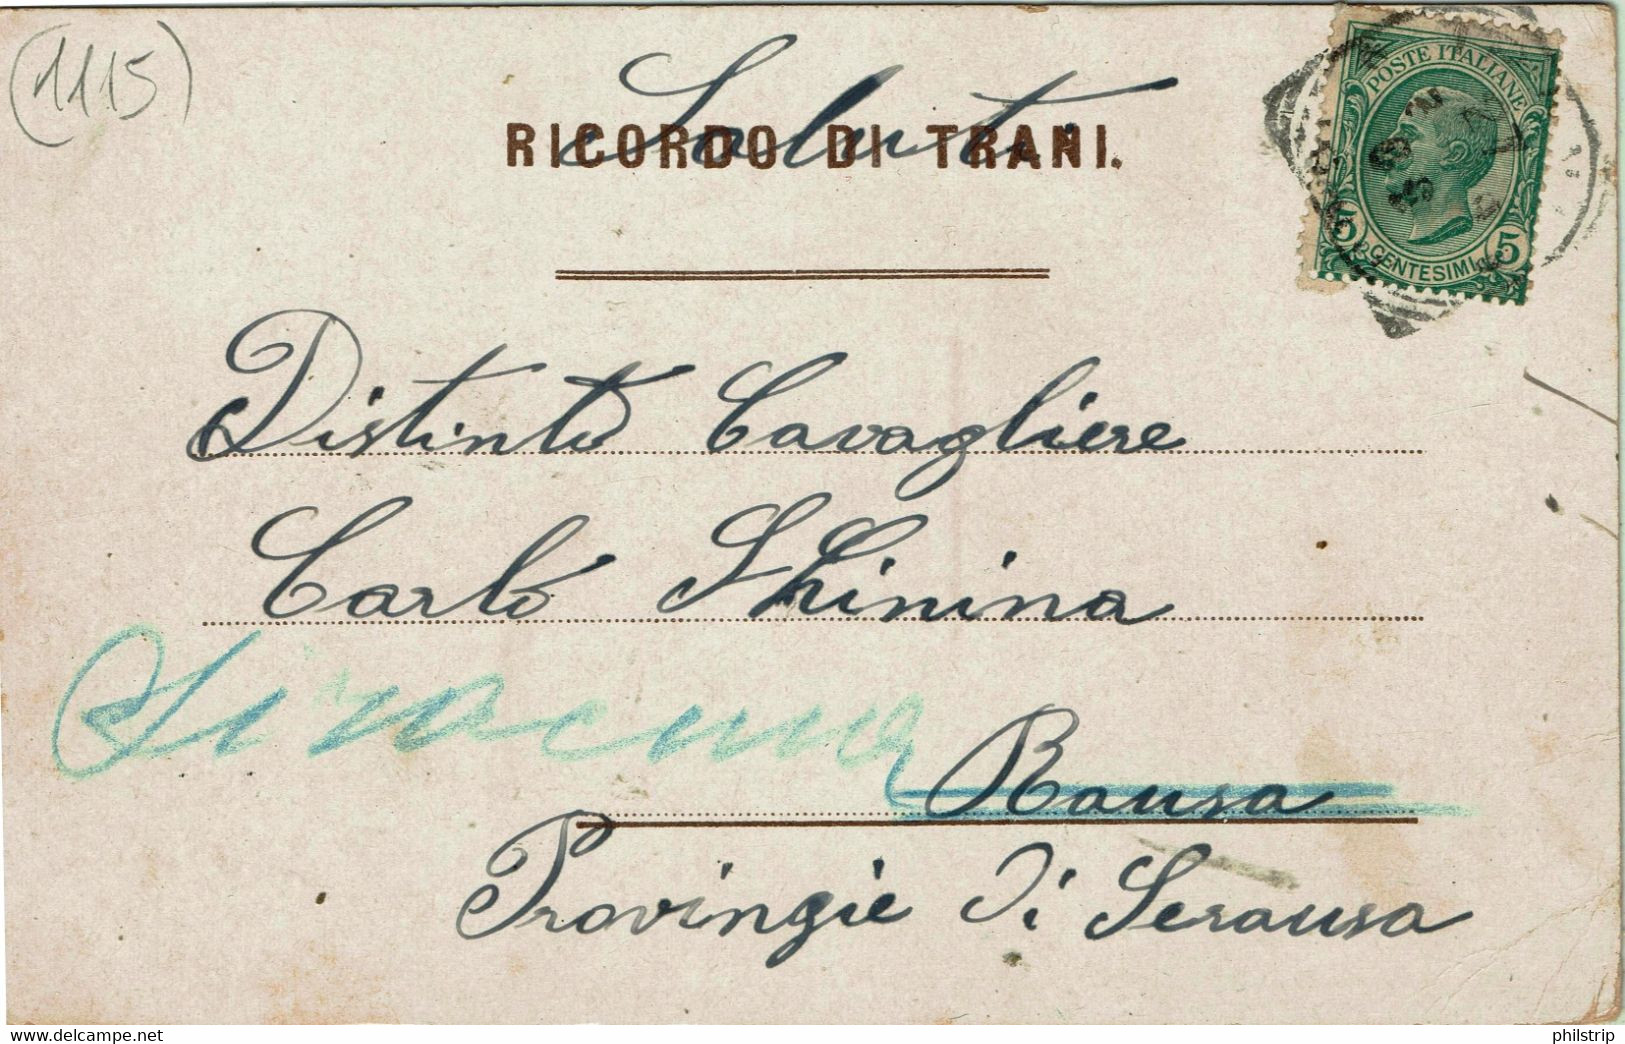 (1115)
Saluti
RICORDO DI TRANI.
POSTE ITALIANE
5 CENTESIMI 5
Distinto Cavagliere
Carlo Shinina
Siracusa
Rausa
Provingie Di Serausa
www.delcampe.net
philstrip